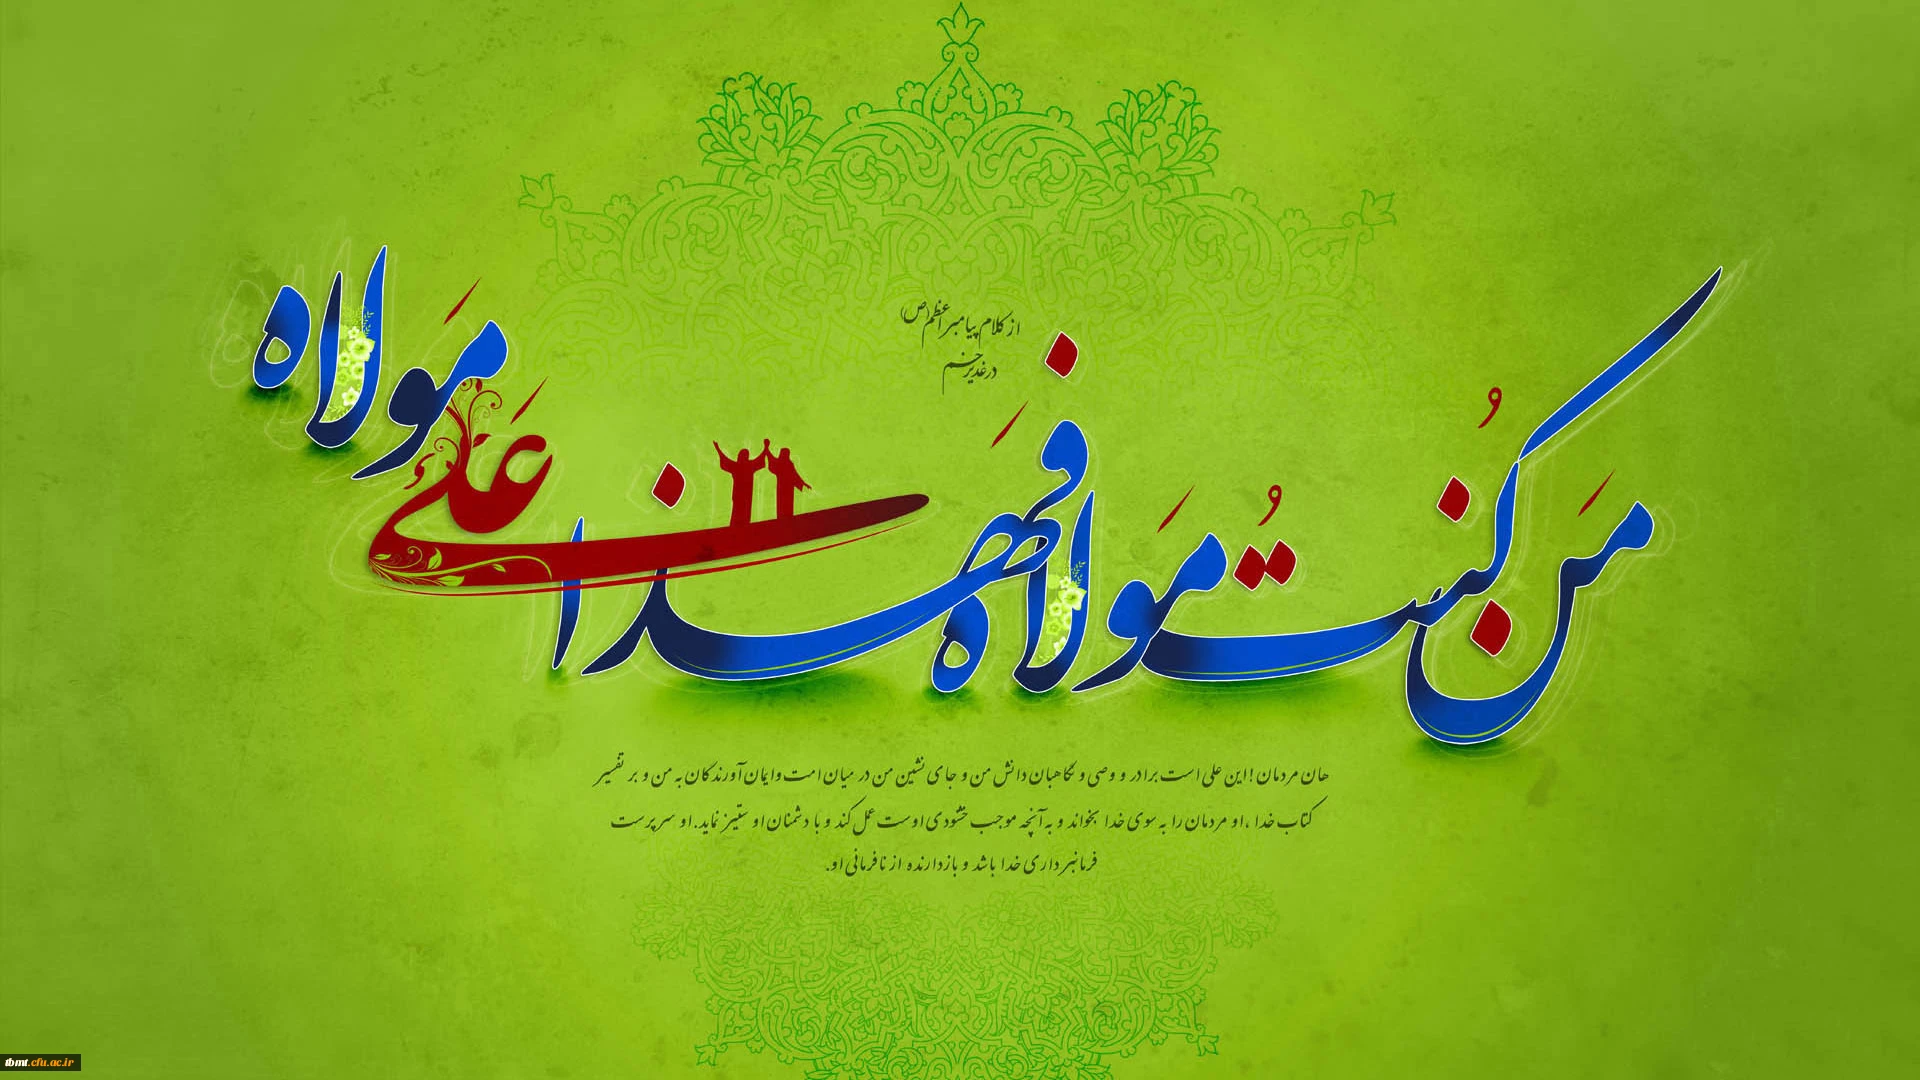 از کلام پیامبر اعظم(ص)
در غدیر خم
مَن کُنتُ مَولاه فَهذا عَلی مَولاه
هان مردمان! این علی است برادر و وصی و نگاهبان دانش من و جای نشین من در میان امت و ایمان آورندگان به من و بر تفسیر
کتاب خدا ، او مردمان را به سوی خدا بخواند و به آنچه موجب خشنودی اوست عمل کند و با دشمنان او ستیز نماید. او سرپرست
فرمانبرداری خدا باشد و بازدارنده از نافرمانی او.
tbmt.cfu.ac.ir